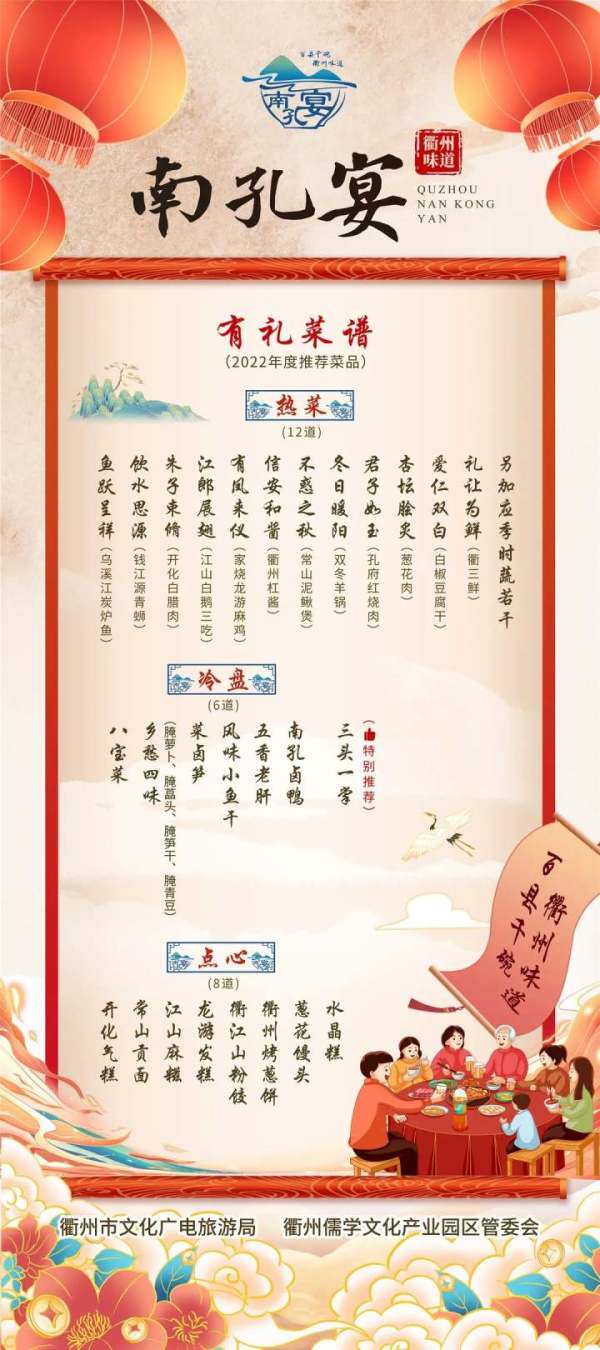 百县千碗
衢州味道
南孔宴
南孔宴
衢州
味道
QUZHOU
NAN KONG
YAN
有礼菜谱
（2022年度推荐菜品）
热菜
(12道)
鱼跃呈祥（乌溪江炭炉鱼）
饮水思源（钱江源青蛳）
朱子束脩（开化白腊肉）
江郎展翅（江山白鹅三吃）
有凤来仪（家烧龙游麻鸡）
信安和酱（衢州杠酱）
不惑之秋（常山泥鳅煲）
冬日暖阳（双冬羊锅）
君子如玉（孔府红烧肉）
杏坛脍炙（葱花肉）
爱仁双白（白椒豆腐干）
礼让为鲜（衢三鲜）
另加应季时蔬若干
冷盘
(6道)
八宝菜
乡愁四味
（腌萝卜、腌藠头、腌笋干、腌青豆）
菜卤笋
风味小鱼干
五香老肝
南孔卤鸭
三头一掌
（特别推荐）
点心
(8道)
开化气糕
常山贡面
江山麻糍
龙游发糕
衢江山粉饺
衢州烤葱饼
葱花馒头
水晶糕
百县千碗
衢州味道
衢州市文化广电旅游局 衢州儒学文化产业园区管委会